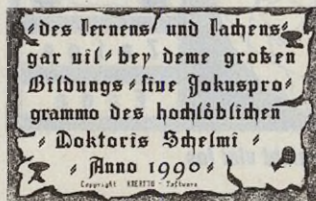 des Lernens und Lachens
gar vil bey deme großen
Bildungs sive Jokuspro
grammo des hochlöblichen
Doktoris Schelmi
Anno 1990
Copyright Software